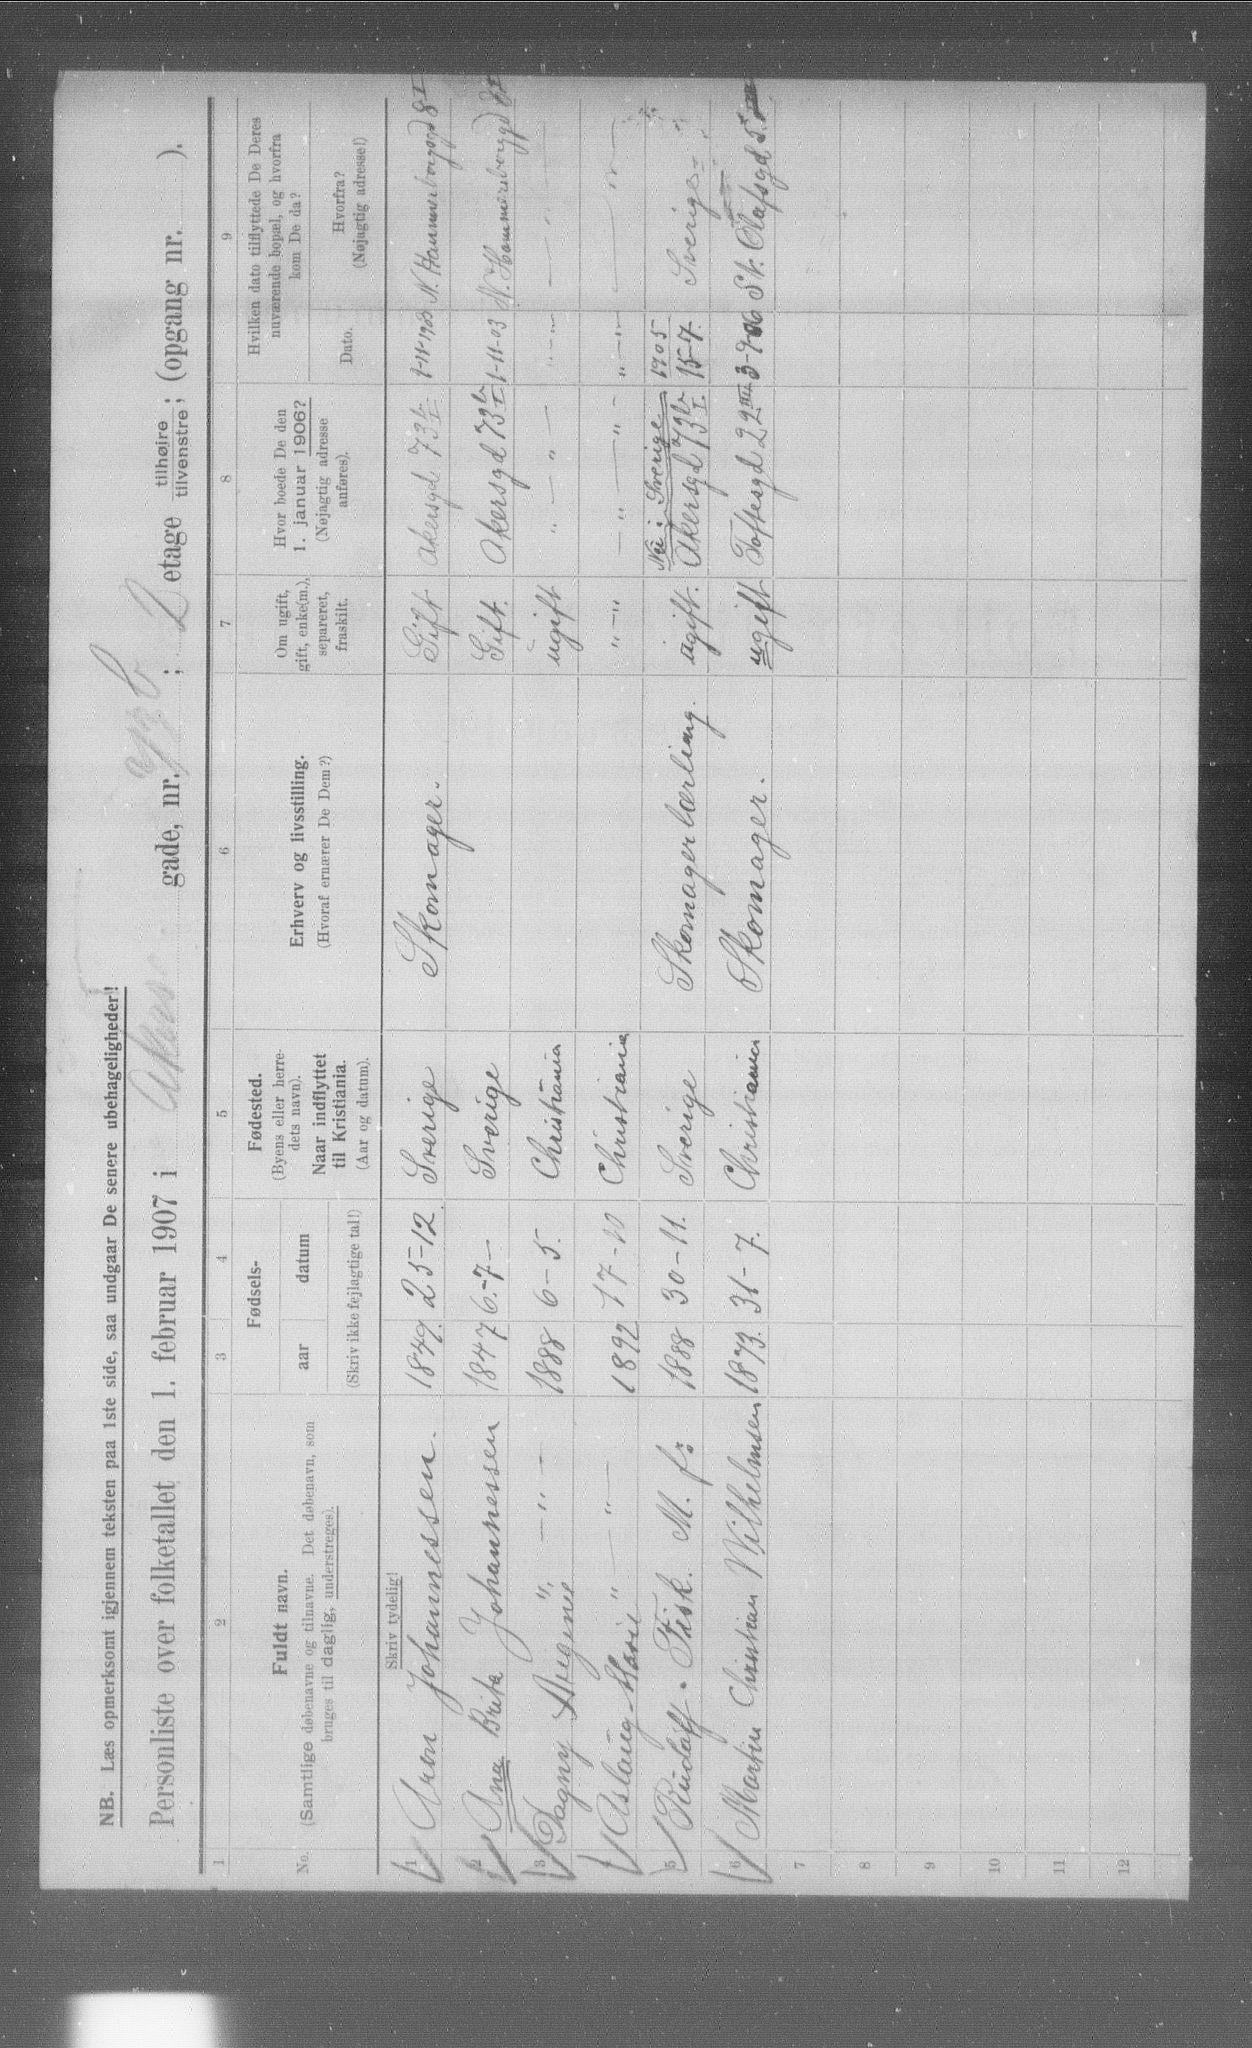 NB. Læs opmerksomt igjennem teksten paa 1ste side, saa undgaar De senere ubehageligheder!
Personliste over folketallet den 1. februar 1907 i Akers gade, nr. 73 b ; 2 etage tilhøjre tilvenstre ; (opgang nr. ).
1 2 3 4 5 6 7 8 9
No.
Fuldt navn.
(Samtlige døbenavne og tilnavne. Det døbenavn, som
bruges til daglig, understreges).
Fødsels-
aar datum
(Skriv ikke fejlagtige tal!)
Fødested.
(Byens eller herre-
dets navn).
Naar indflyttet
til Kristiania.
(Aar og datum).
Erhverv og livsstilling.
(Hvoraf ernærer De Dem?)
Om ugift,
gift, enke(m.),
separeret,
fraskilt.
Hvor boede De den
1. januar 1906?
(Nøjagtig adresse
anføres).
Hvilken dato tilflyttede De Deres
nuværende bopæl, og hvorfra
kom De da?
Dato.
Hvorfra?
(Nøjagtig adresse!)
Skriv tydelig!
1 Aron Johannessen. 1849. 25-12. Sverige Skomager. Gift Akersgd 73 b I 1-11-1903 N. Hammersborggd 8 I
2 Ana Brita Johannessen 1847 6.-7- Sverige Gift. Akersgd 73 b I 1-11-03 N. Hammersborggd 8 I
3 Dagny " - " - 1888 6-5. Christiania ugift " - " - " - " - " -
4 Aslaug Marie " - " - 1892 17-10 Christiania " - " - " - " - " - " - " -
Nei i Sverige 1905
5 Rudolf. Fisk. M. f: 1888 30-11. Sverige Skomagerlærling. ugift. Akersgd 73 b I 15-7. Sverige
6 Martin Christian Wilhelmsen 1873. 31-7. Christiania Skomager. ugift Toftesgd 22 III 3-9-06 St. Olafsgd 5.
7
8
9
10
11
12